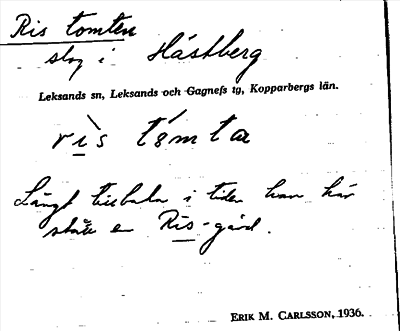 Ris tomten
slog i Hästberg
Leksands sn, Leksands och Gagnefs tg, Kopparbergs län.
rìs támta
Långt tillbaka i tiden han här
stått en Ris-gård.
ERIK M. CARLSSON, 1936.